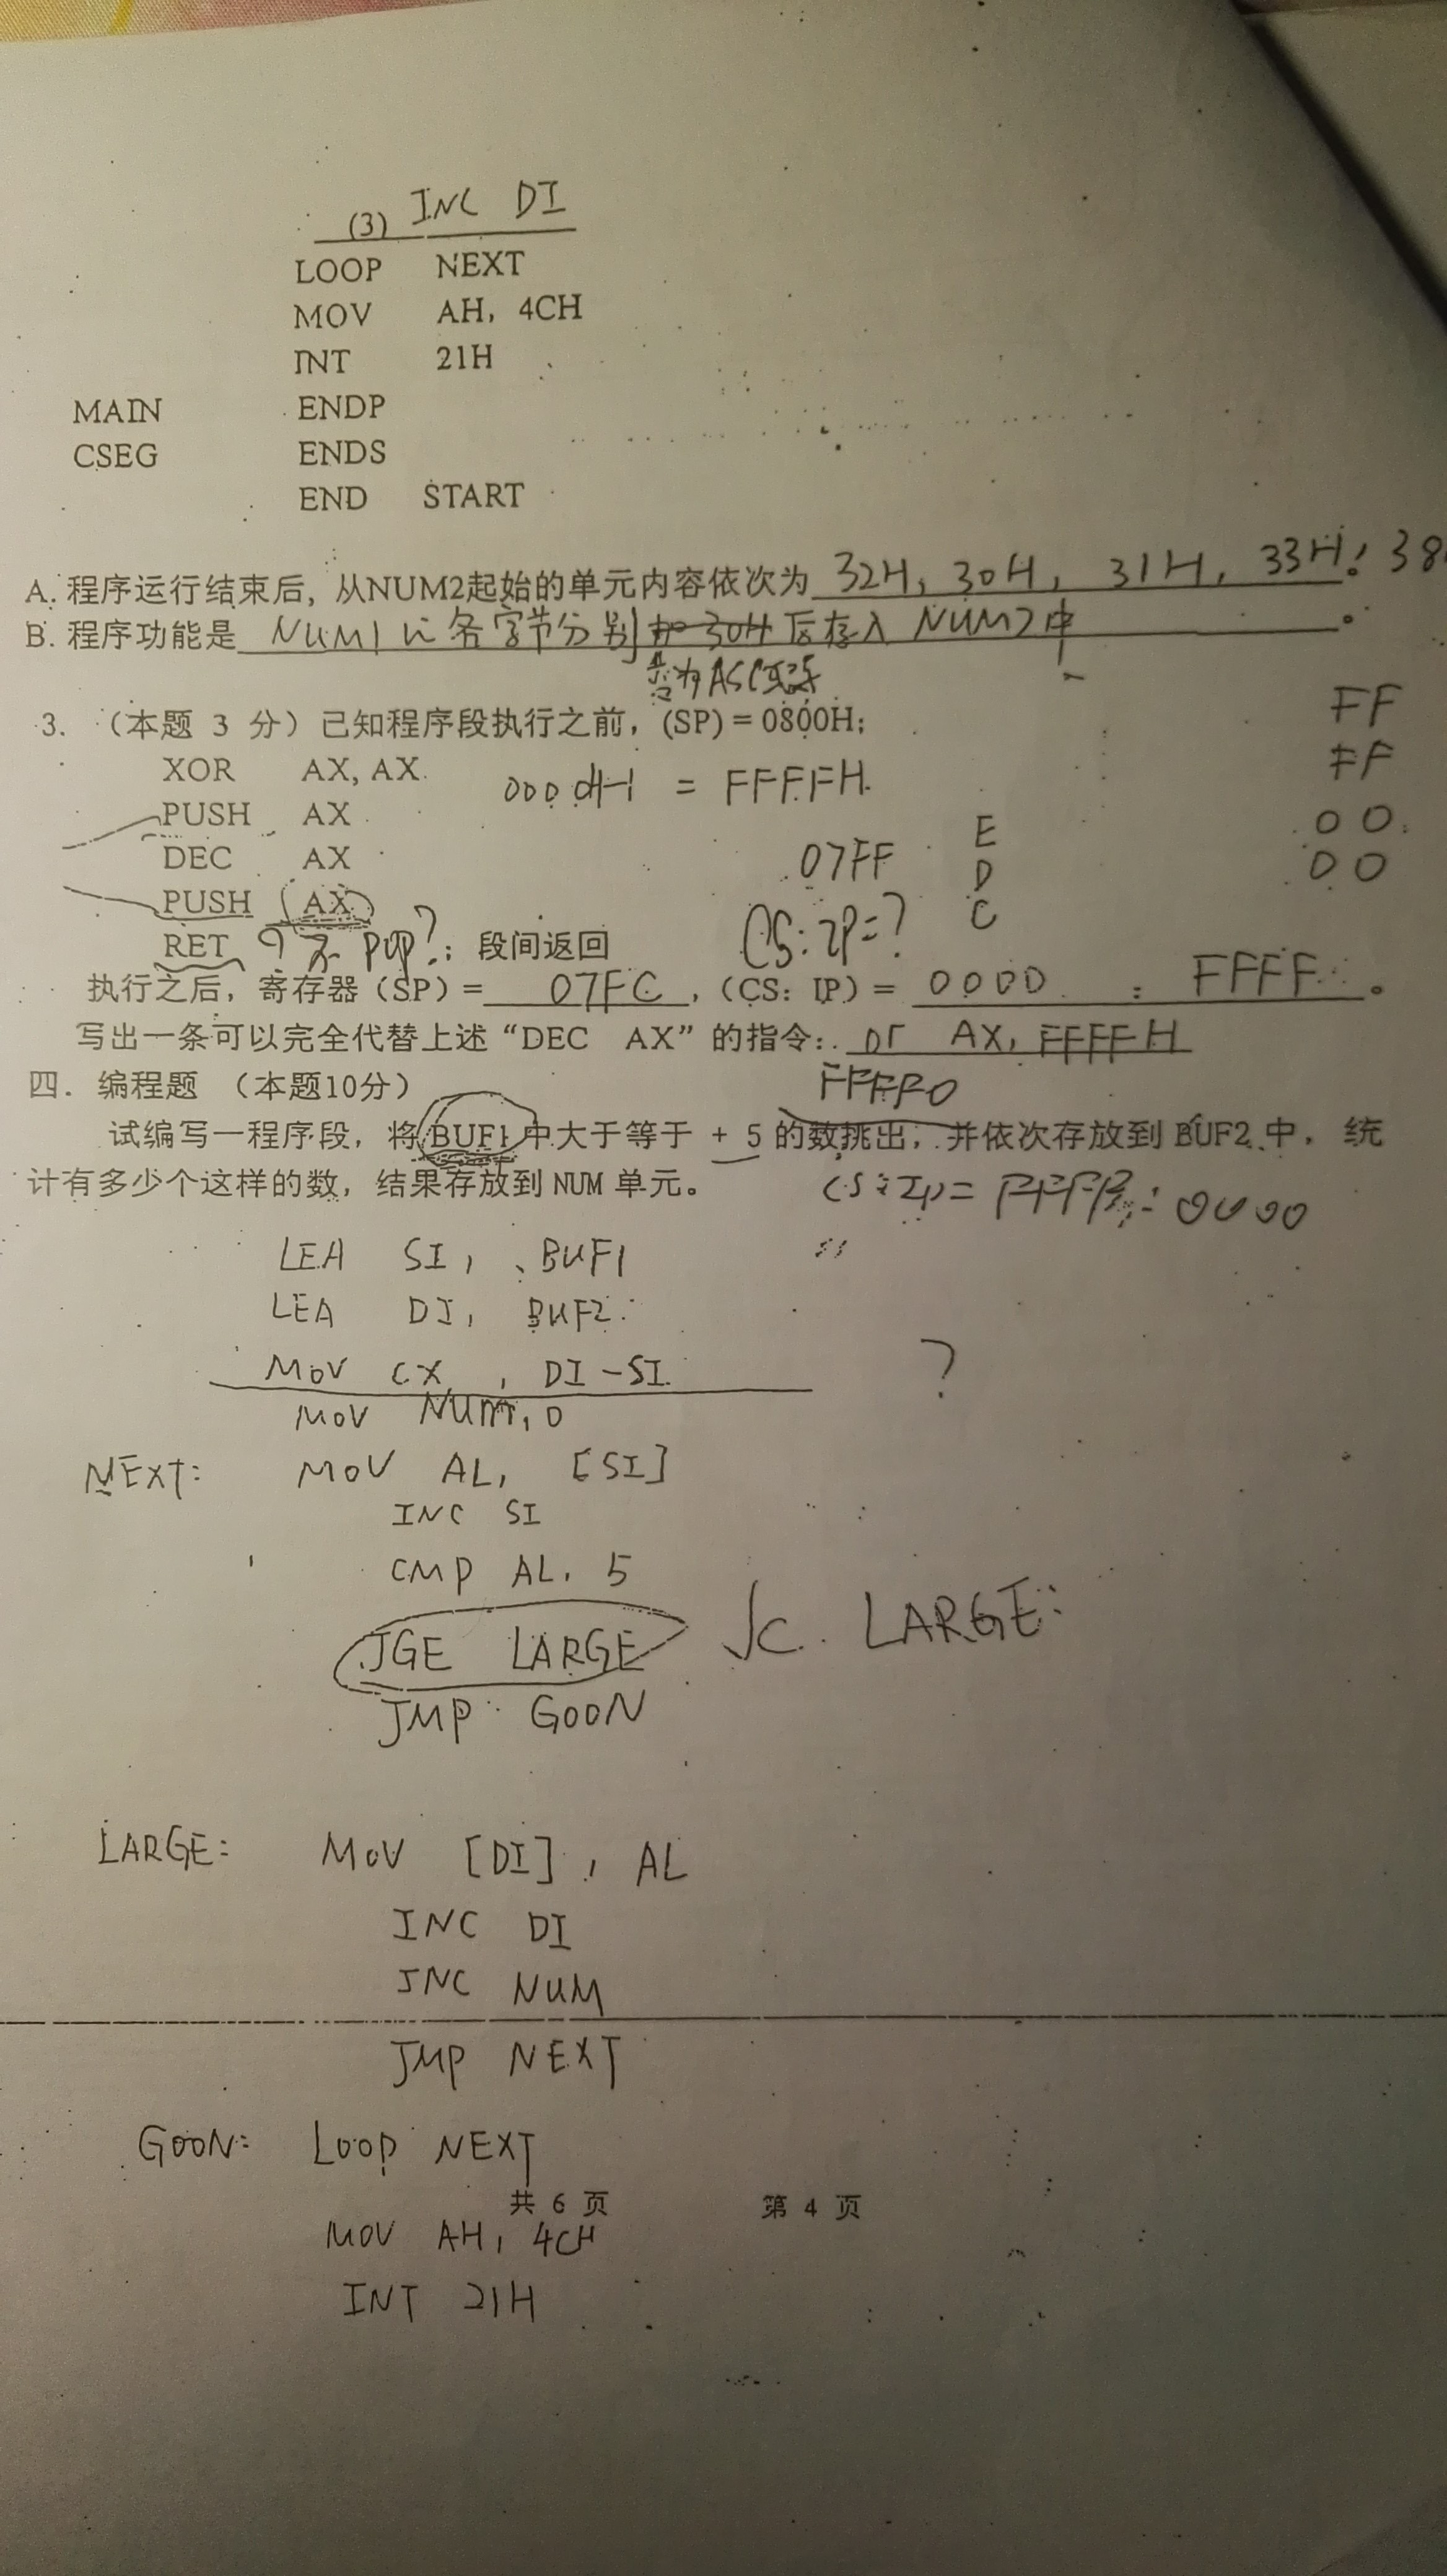 (3) INC DI
LOOP NEXT
MOV AH, 4CH
INT 21H
MAIN ENDP
CSEG ENDS
END START
A. 程序运行结束后, 从NUM2起始的单元内容依次为 32H, 30H, 31H, 33H, 38
B. 程序功能是 NUM1 各字节分别 后存入 NUM2中
FF
3. （本题 3 分）已知程序段执行之前, (SP) = 0800H;
FF
XOR AX, AX
000 = FFFFH
PUSH AX
E
00
DEC AX
07FF
D
00
PUSH AX
C
RET POP? ; 段间返回
CS:IP=?
执行之后, 寄存器 (SP) = 07FC, (CS: IP) = 0000 : FFFF。
写出一条可以完全代替上述“DEC AX”的指令: or AX, FFFFH
四. 编程题 （本题10分）
FFFF0
试编写一程序段, 将 BUF1 中大于等于 + 5 的数挑出, 并依次存放到 BUF2 中, 统
计有多少个这样的数, 结果存放到 NUM 单元。
CS:IP= : 0000
LEA SI, BUF1
LEA DI, BUF2
MOV CX, DI-SI
?
MOV NUM, 0
NEXT: MOV AL, [SI]
INC SI
CMP AL, 5
JGE LARGE
JC LARGE:
JMP GOON
LARGE: MOV [DI], AL
INC DI
INC NUM
JMP NEXT
GOON: LOOP NEXT
共 6 页 第 4 页
MOV AH, 4CH
INT 21H